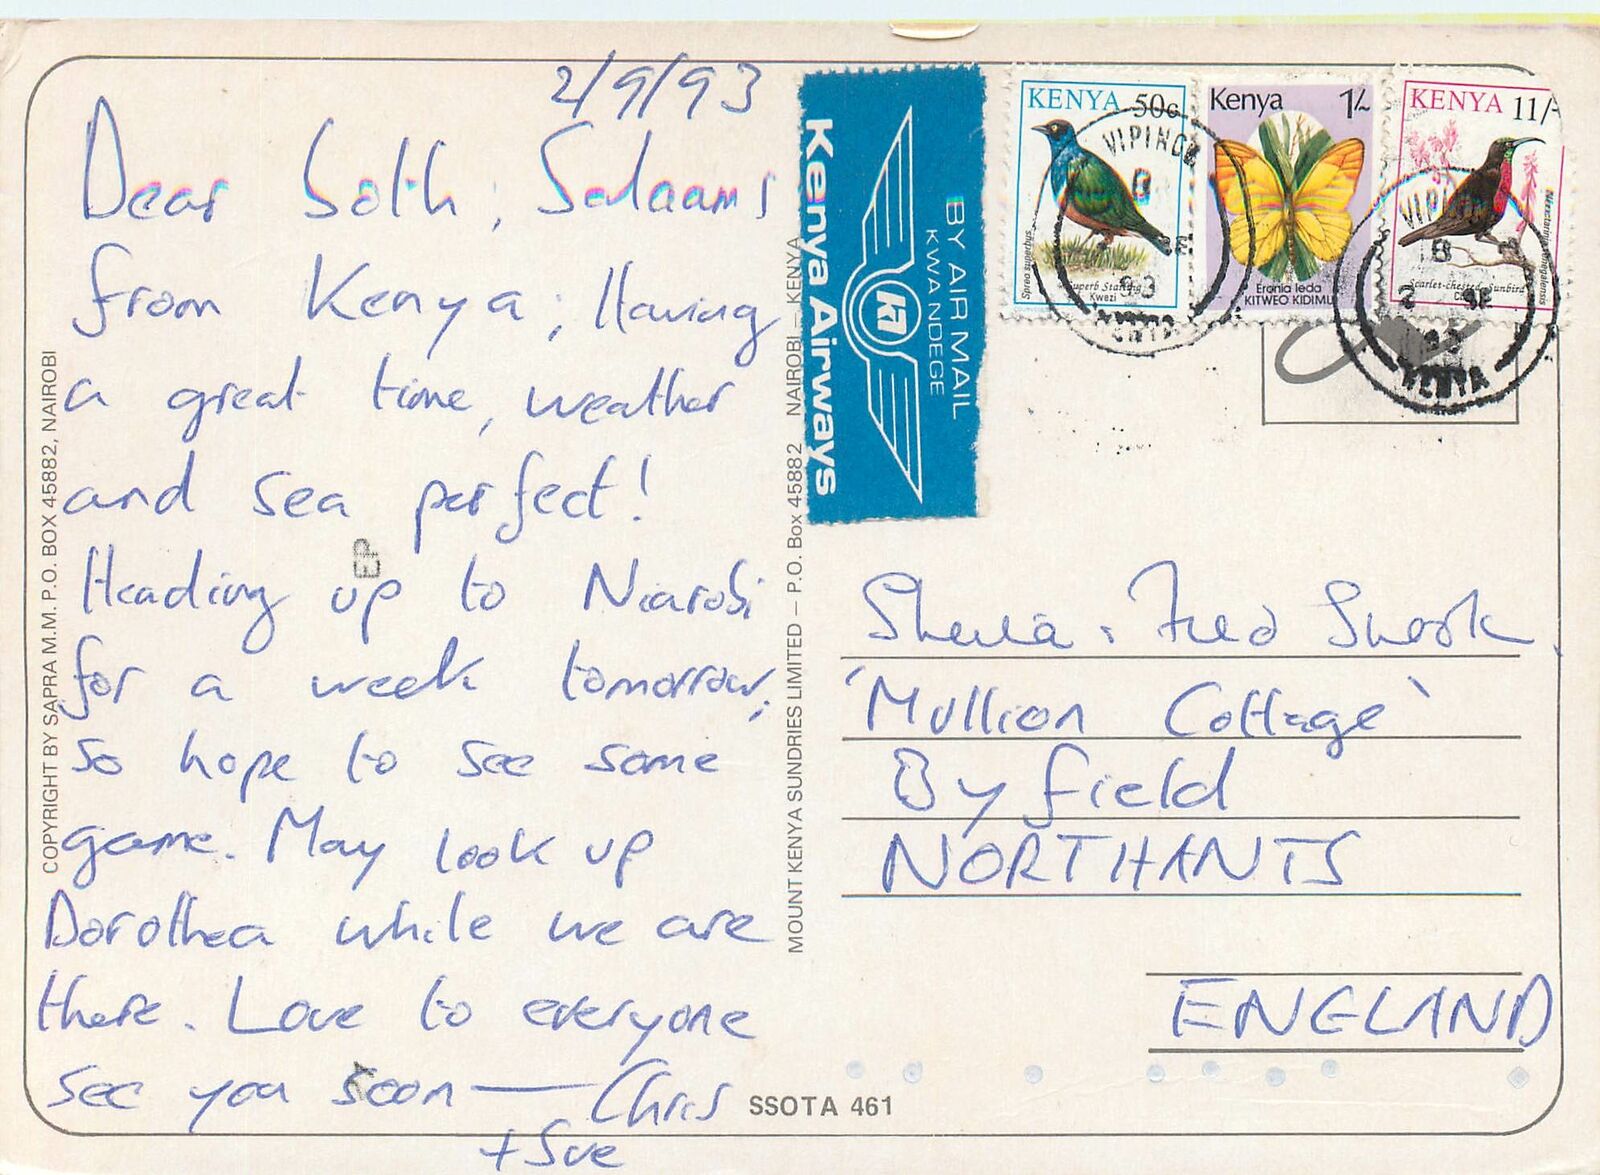 2/9/93
Dear both, Salaams
from Kenya; Having
a great time, weather
and sea perfect!
Heading up to Niarobi
for a week tomorrow,
so hope to see some
game. May look up
Dorothea while we are
there. Love to everyone
see you soon — Chris
+ Sue
COPYRIGHT BY SAPRA M.M. P.O. BOX 45882, NAIROBI
EP
MOUNT KENYA SUNDRIES LIMITED – P.O. Box 45882 NAIROBI – KENYA
Kenya Airways
BY AIR MAIL
KWA NDEGE
KENYA 50c
Spreo superbus
Superb Starling
Kwezi
Kenya 1/-
Eronia leda
KITWEO KIDIMU
KENYA 11/-
Scarlet-chested Sunbird
VIPINGO
93
KENYA
VIPINGO
2 SE
93
KENYA
Sheila & Fred Snook
'Mullion Cottage'
Byfield
NORTHANTS
ENGLAND
SSOTA 461